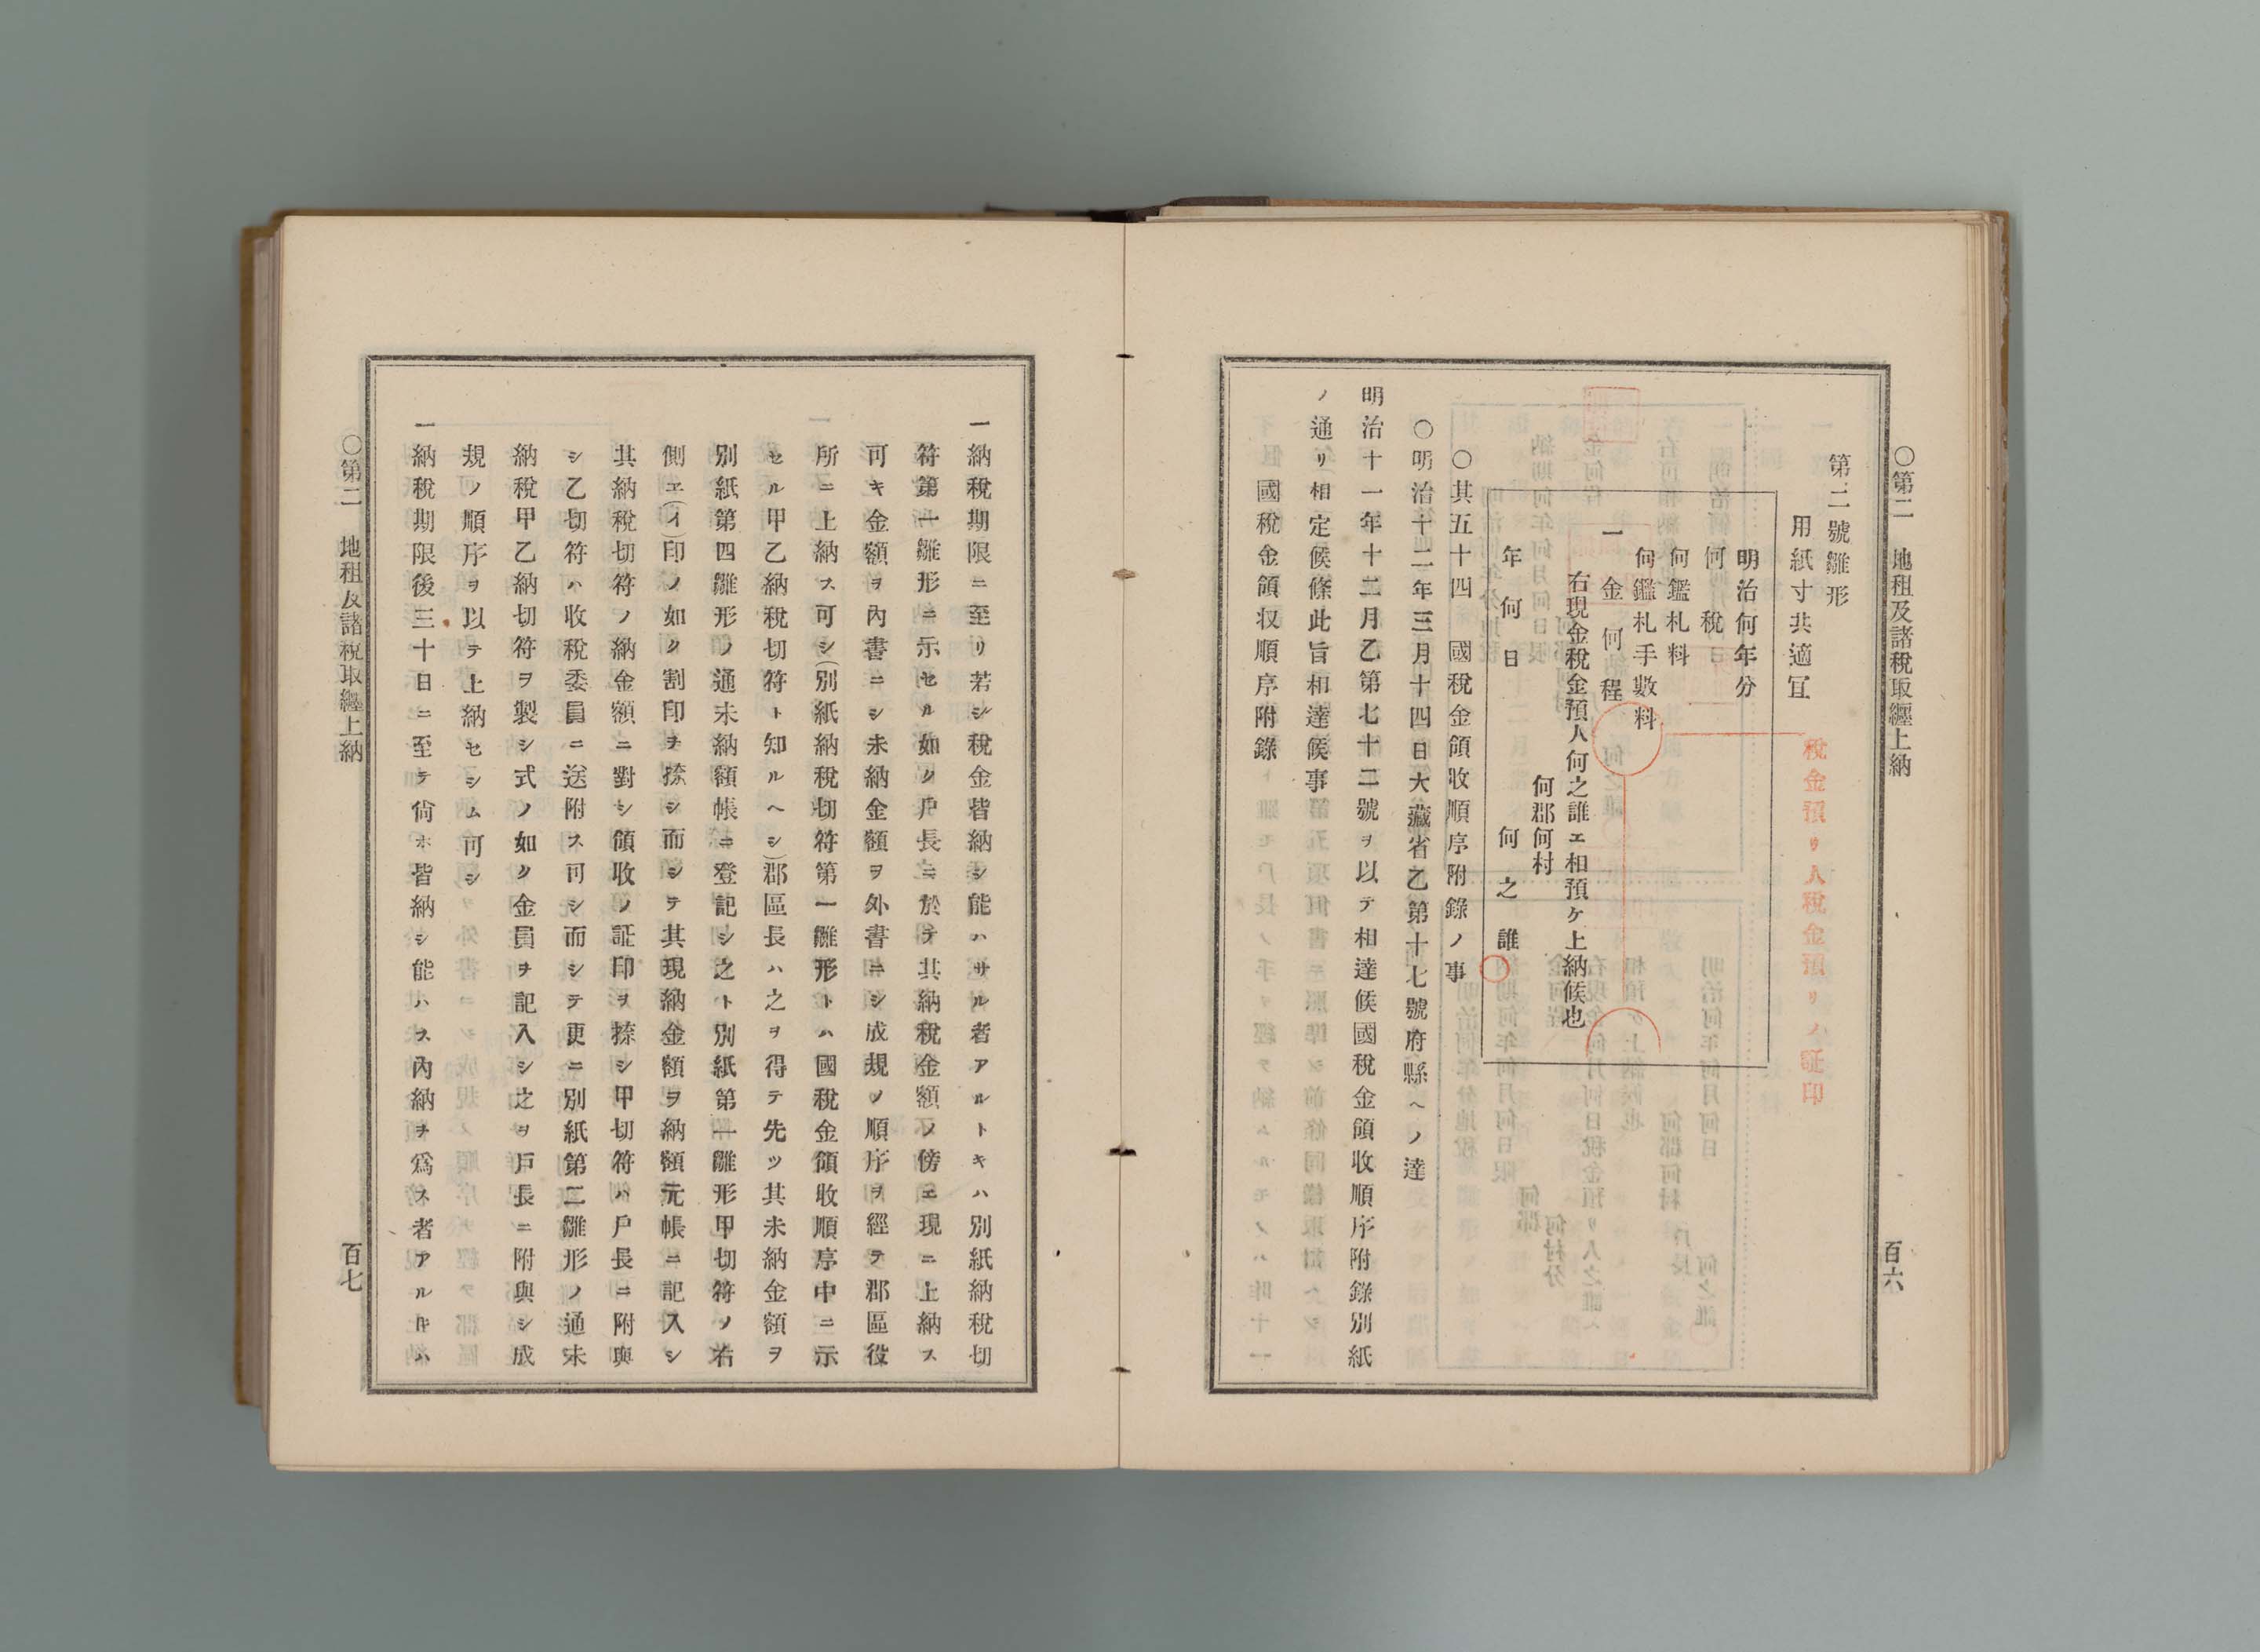 ○第二　地租及諸税取纒上納
百六
第二號雛形
用紙寸共適冝
税金預リ人税金預リノ証印
明治何年分
何　税
何鑑札料
何鑑札手數料
一　金　何　程
右現金税金預人何之誰エ相預ケ上納候也
何郡何村
年　何　日　何　之　誰
○其五十四　國税金領收順序附錄ノ事
○明治十二年三月十四日大藏省乙第十七號府縣ヘノ達
明治十一年十二月乙第七十二號ヲ以テ相達候國税金領收順序附錄別紙
ノ通リ相定候條此旨相達候事
國税金領収順序附錄
一納税期限ニ至リ若シ税金皆納シ能ハサル者アルトキハ別紙納税切
符第一雛形ニ示セル如ク戸長ニ於テ其納税金額ノ傍エ現ニ上納ス
可キ金額ヲ內書ニシ未納金額ヲ外書ニシ成規ノ順序ヲ經テ郡區役
所ニ上納ス可シ(別紙納税切符第一雛形トハ國税金領收順序中ニ示
セル甲乙納税切符ト知ルヘシ)郡區長ハ之ヲ得テ先ツ其未納金額ヲ
別紙第四雛形ノ通未納額帳ニ登記シ之ト別紙第一雛形甲切符ノ右
側エ(イ)印ノ如ク割印ヲ捺シ而シテ其現納金額ヲ納額元帳ニ記入シ
其納税切符ノ納金額ニ對シ領收ノ証印ヲ捺シ甲切符ハ戸長ニ附與
シ乙切符ハ收税委員ニ送附ス可シ而シテ更ニ別紙第二雛形ノ通未
納税甲乙納切符ヲ製シ式ノ如ク金員ヲ記入シ之ヲ戸長ニ附與シ成
規ノ順序ヲ以テ上納セシム可シ
一納税期限後三十日ニ至テ尙ホ皆納シ能ハス內納ヲ爲ス者アル𪜈ハ
○第二　地租及諸税取纒上納
百七